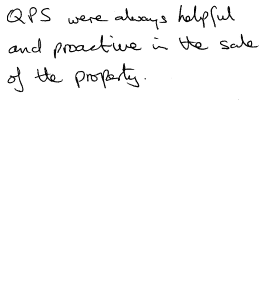 QPS were always helpful
and proactive in the sale
of the property.